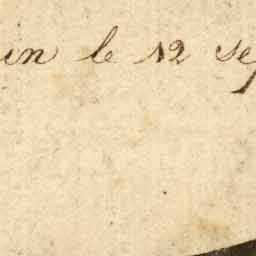 in le 12 se